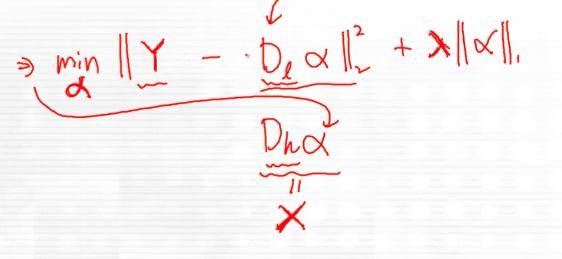 ⇒ min ‖ Y - D_l α ‖₂² + λ‖α‖₁
α
D_h α
=
X